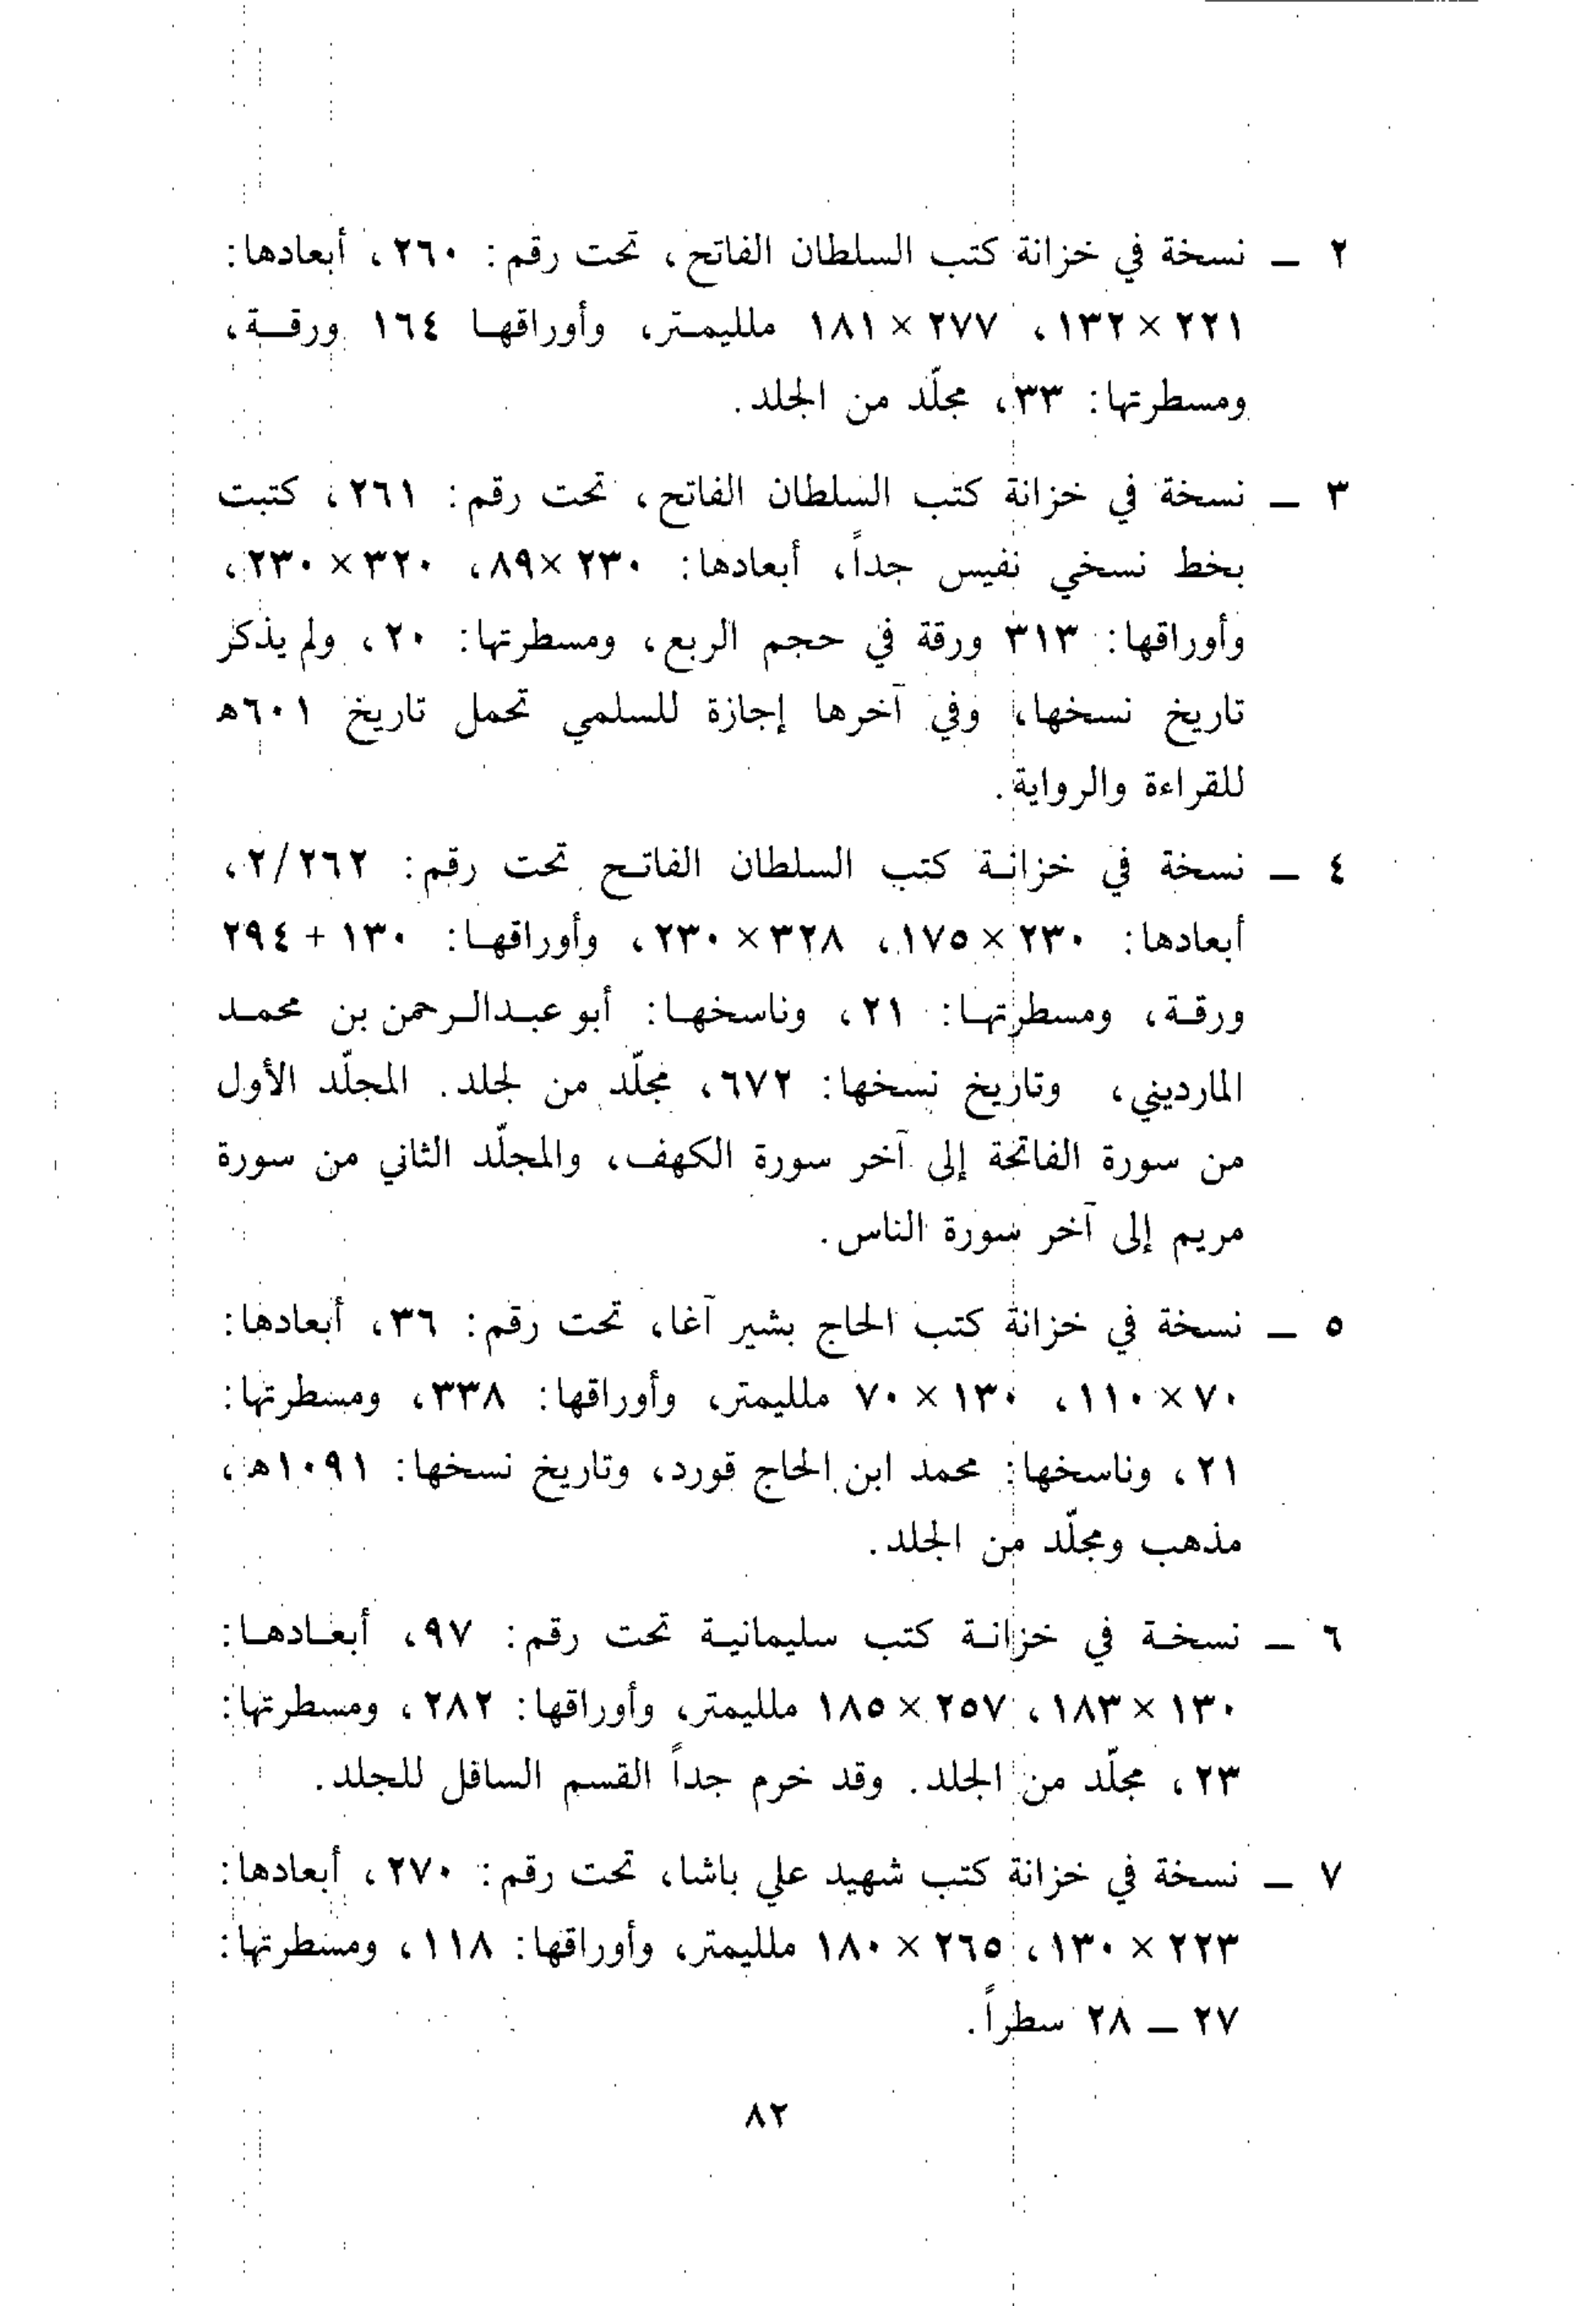 ٢ ــ نسخة في خزانة كتب السلطان الفاتح، تحت رقم: ٢٦٠، أبعادها:
٢٢١ × ١٣٢، ٢٧٧ × ١٨١ ملليمتر، وأوراقها ١٦٤ ورقة،
ومسطرتها: ٣٣، مجلّد من الجلد.
٣ ــ نسخة في خزانة كتب السلطان الفاتح، تحت رقم: ٢٦١، كتبت
بخط نسخي نفيس جداً، أبعادها: ٢٣٠ × ٨٩، ٣٢٠ × ٢٣٠،
وأوراقها: ٣١٣ ورقة في حجم الربع، ومسطرتها: ٢٠، ولم يذكر
تاريخ نسخها، وفي آخرها إجازة للسلمي تحمل تاريخ ٦٠١هـ
للقراءة والرواية.
٤ ــ نسخة في خزانة كتب السلطان الفاتح تحت رقم: ٢/٢٦٢،
أبعادها: ٢٣٠ × ١٧٥، ٣٢٨ × ٢٣٠، وأوراقها: ١٣٠ + ٢٩٤
ورقة، ومسطرتها: ٢١، وناسخها: أبو عبدالرحمن بن محمد
المارديني، وتاريخ نسخها: ٦٧٢، مجلّد من لجلد. المجلّد الأول
من سورة الفاتحة إلى آخر سورة الكهف، والمجلّد الثاني من سورة
مريم إلى آخر سورة الناس.
٥ ــ نسخة في خزانة كتب الحاج بشير آغا، تحت رقم: ٣٦، أبعادها:
٧٠ × ١١٠، ١٣٠ × ٧٠ ملليمتر، وأوراقها: ٣٣٨، ومسطرتها:
٢١، وناسخها: محمد ابن الحاج قورد، وتاريخ نسخها: ١٠٩١هـ،
مذهب ومجلّد من الجلد.
٦ ــ نسخة في خزانة كتب سليمانية تحت رقم: ٩٧، أبعادها:
١٣٠ × ١٨٣، ٢٥٧ × ١٨٥ ملليمتر، وأوراقها: ٢٨٢، ومسطرتها:
٢٣، مجلّد من الجلد. وقد خرم جداً القسم السافل للجلد.
٧ ــ نسخة في خزانة كتب شهيد علي باشا، تحت رقم: ٢٧٠، أبعادها:
٢٢٣ × ١٣٠، ٢٦٥ × ١٨٠ ملليمتر، وأوراقها: ١١٨، ومسطرتها:
٢٧ ــ ٢٨ سطراً.
٨٢